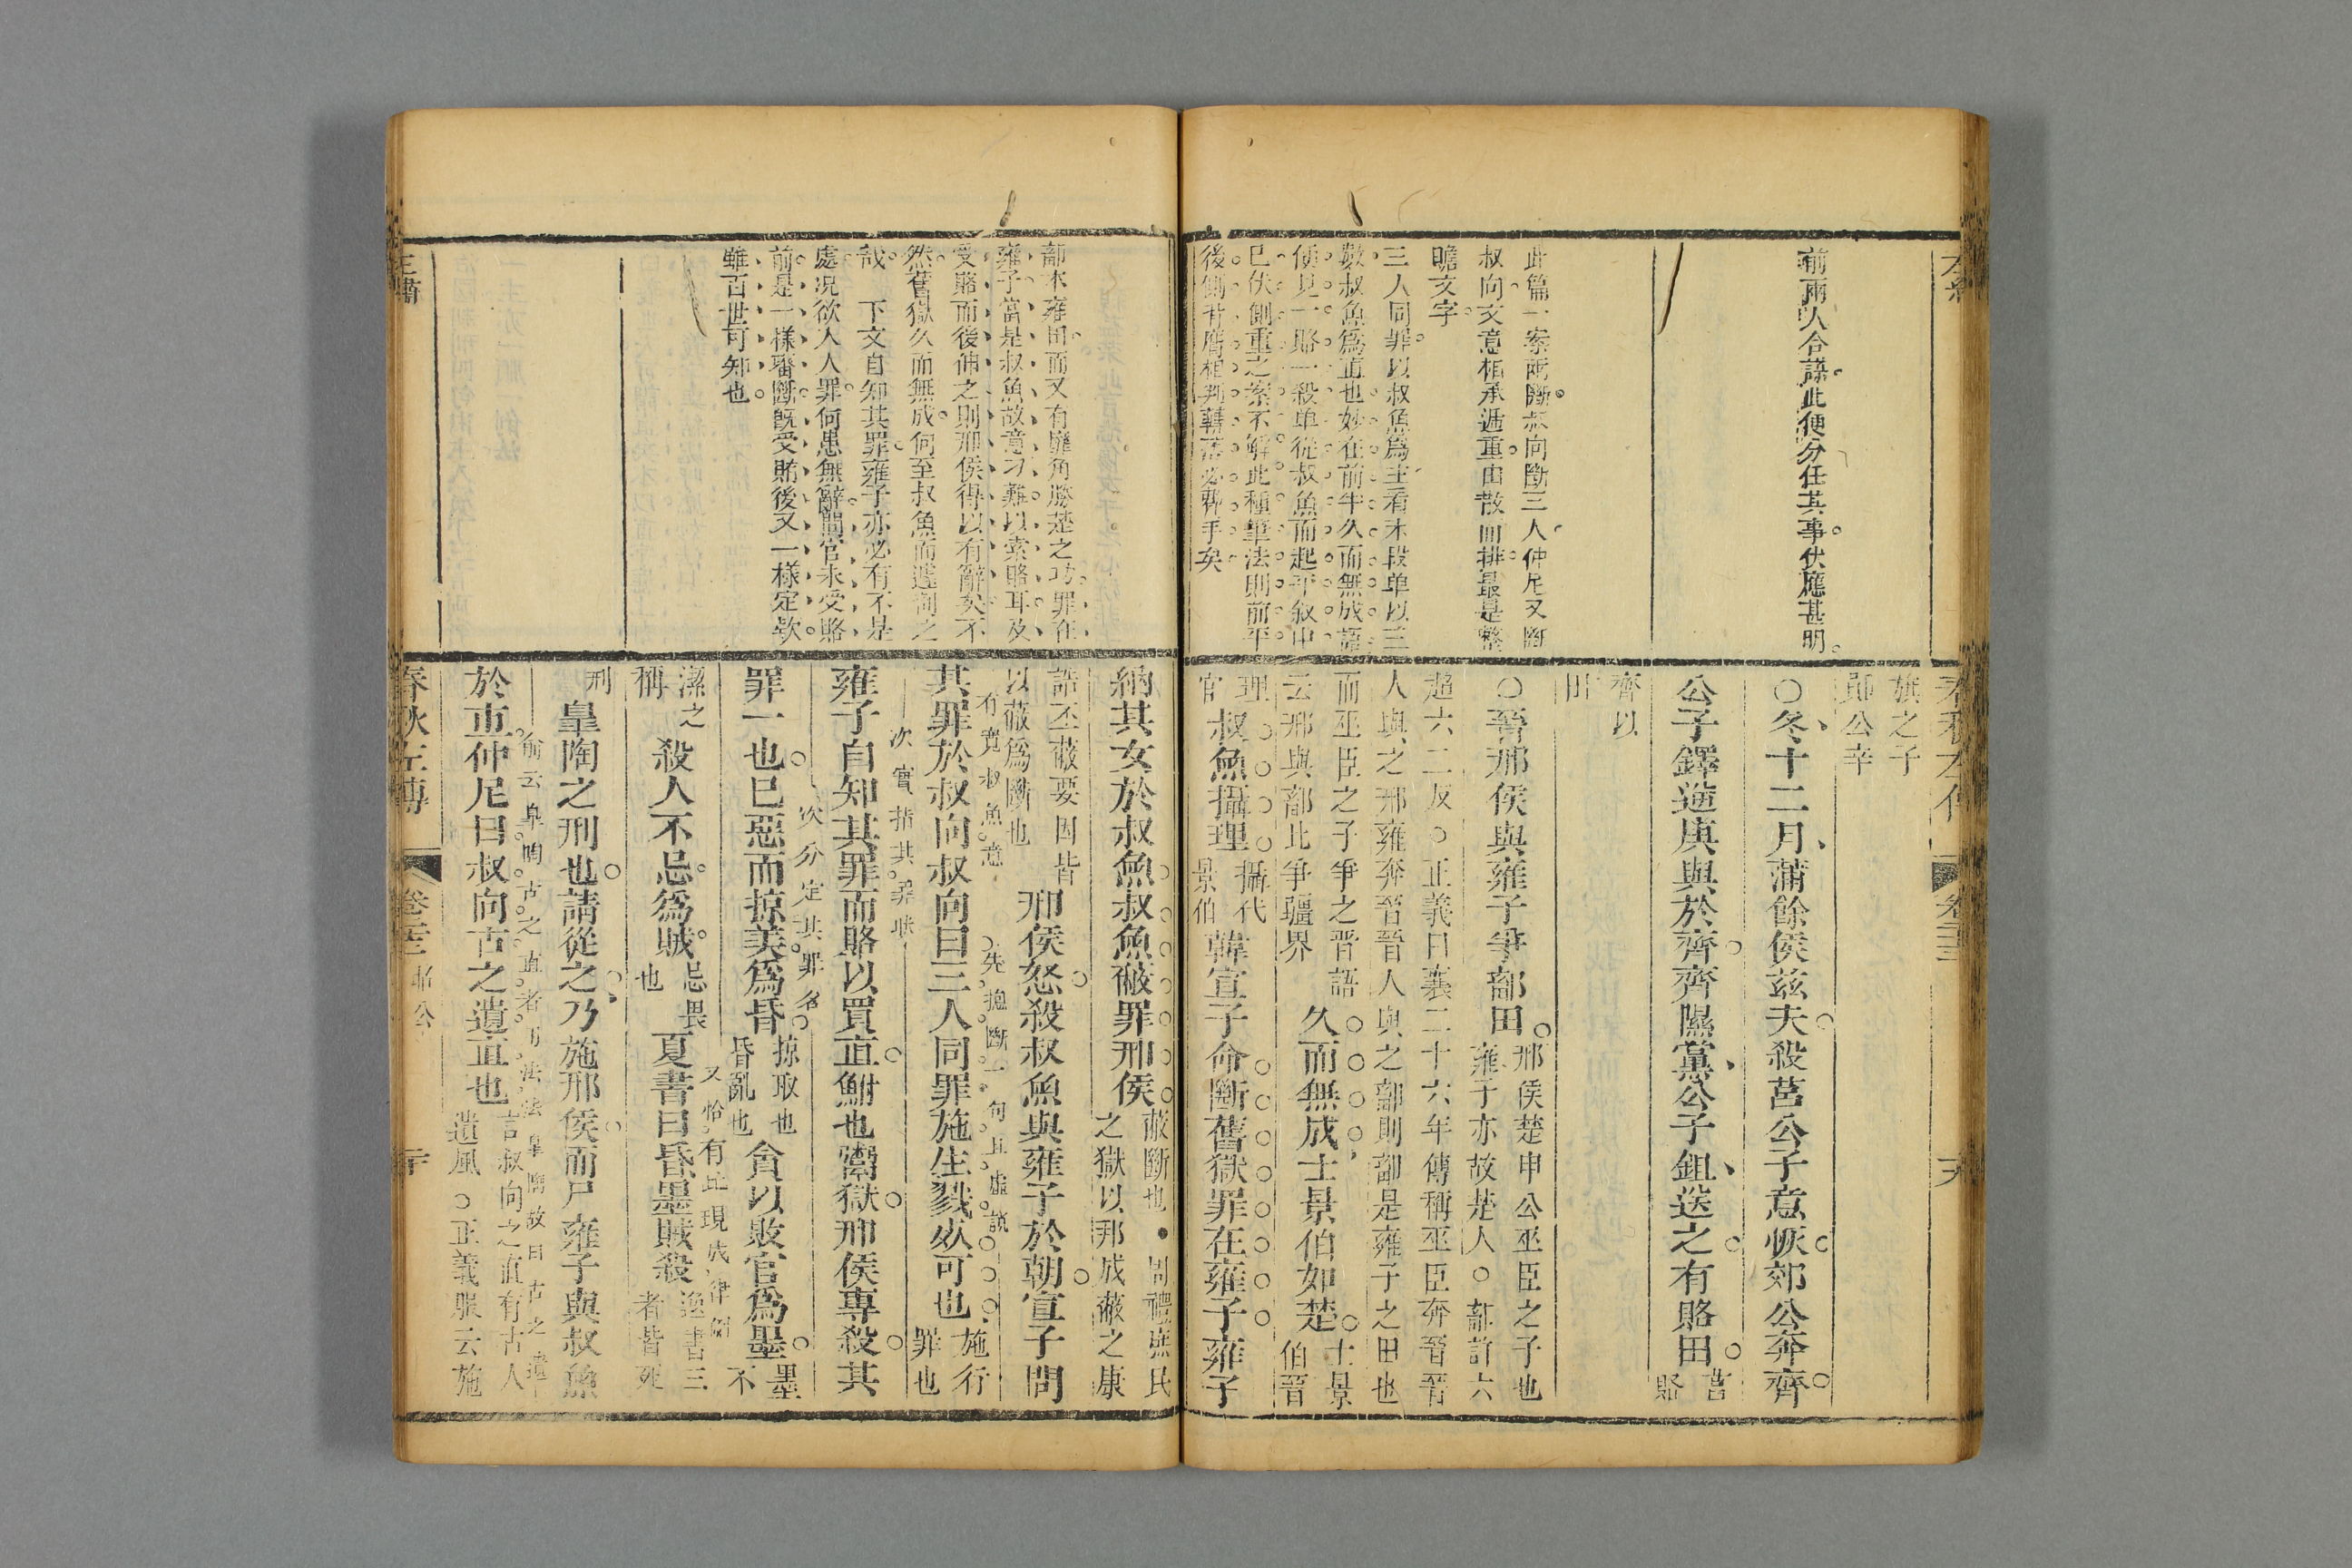 前兩人合謀此便分任其事伏應甚明
此篇一案兩斷叔向斷三人仲尼又斷
叔向文意相承遞重由散而排最是整
瞻文字
三人同罪以叔魚爲主看末段単以三
數叔魚爲直也妙在前半久而無成語
便見一賂一殺単從叔魚而起平敘中
已伏側重之案不解此種筆法則前平
後側
旗之子
鄖公辛
○冬十二月蒲餘侯茲夫殺莒公子意恢郊公奔齊
公子鐸逆庚與於齊齊隰黨公子鉏送之有賂田莒賂
齊以
田
○晉邢侯與雍子爭鄐田邢侯楚申公巫臣之子也
雍子亦故楚人○鄐許六
超六二反○正義曰襄二十六年傳稱巫臣奔晉晉
人與之邢雍奔晉晉人與之鄐則鄐是雍子之田也
而巫臣之子爭之晉語
云邢與鄐比爭疆界
久而無成士景伯如楚士景
伯晉
理
官
叔魚攝理攝代
景伯
韓宣子命斷舊獄罪在雍子雍子
鄐本雍田而又有雍角勝楚之功罪在
雍子當是叔魚故意刁難以索賂耳及
受賂而後伸之則邢侯得以有辭矣不
然舊獄久而無成何至叔魚而遽制之
哉 下文自知其罪雍子亦必有不是
處况欲入人罪何患無辭間官未受賂
前是一樣審斷既受賄後又一樣定欵
雖百世可知也
納其女於叔魚叔魚蔽罪邢侯蔽斷也●周禮庶民
之獄以邦成蔽之康
誥丕蔽要囚皆
以蔽爲斷也
邢侯怒殺叔魚與雍子於朝宣子問
有寬叔魚意 先總斷一句且虛說
其罪於叔向叔向曰三人同罪施生戮死可也施行
罪也
次實指其罪狀
雍子自知其罪而賂以買直鮒也鬻獄邢侯專殺其
次分定其罪名
罪一也已惡而掠美爲昏掠取也
昏亂也
貪以敗官爲墨墨
不
潔之
稱
又恰有此現成律例
殺人不忌爲賊忌畏
也
夏書曰昏墨賊殺逸書三
者皆死
刑
皐陶之刑也請從之乃施邢侯而尸雍子與叔魚
俞云皐陶古之直者而法法皐陶故曰古之遺
於市仲尼曰叔向古之遺直也言叔向之直有古人
遺風○正義服云施
春秋左傳 卷三 昭公